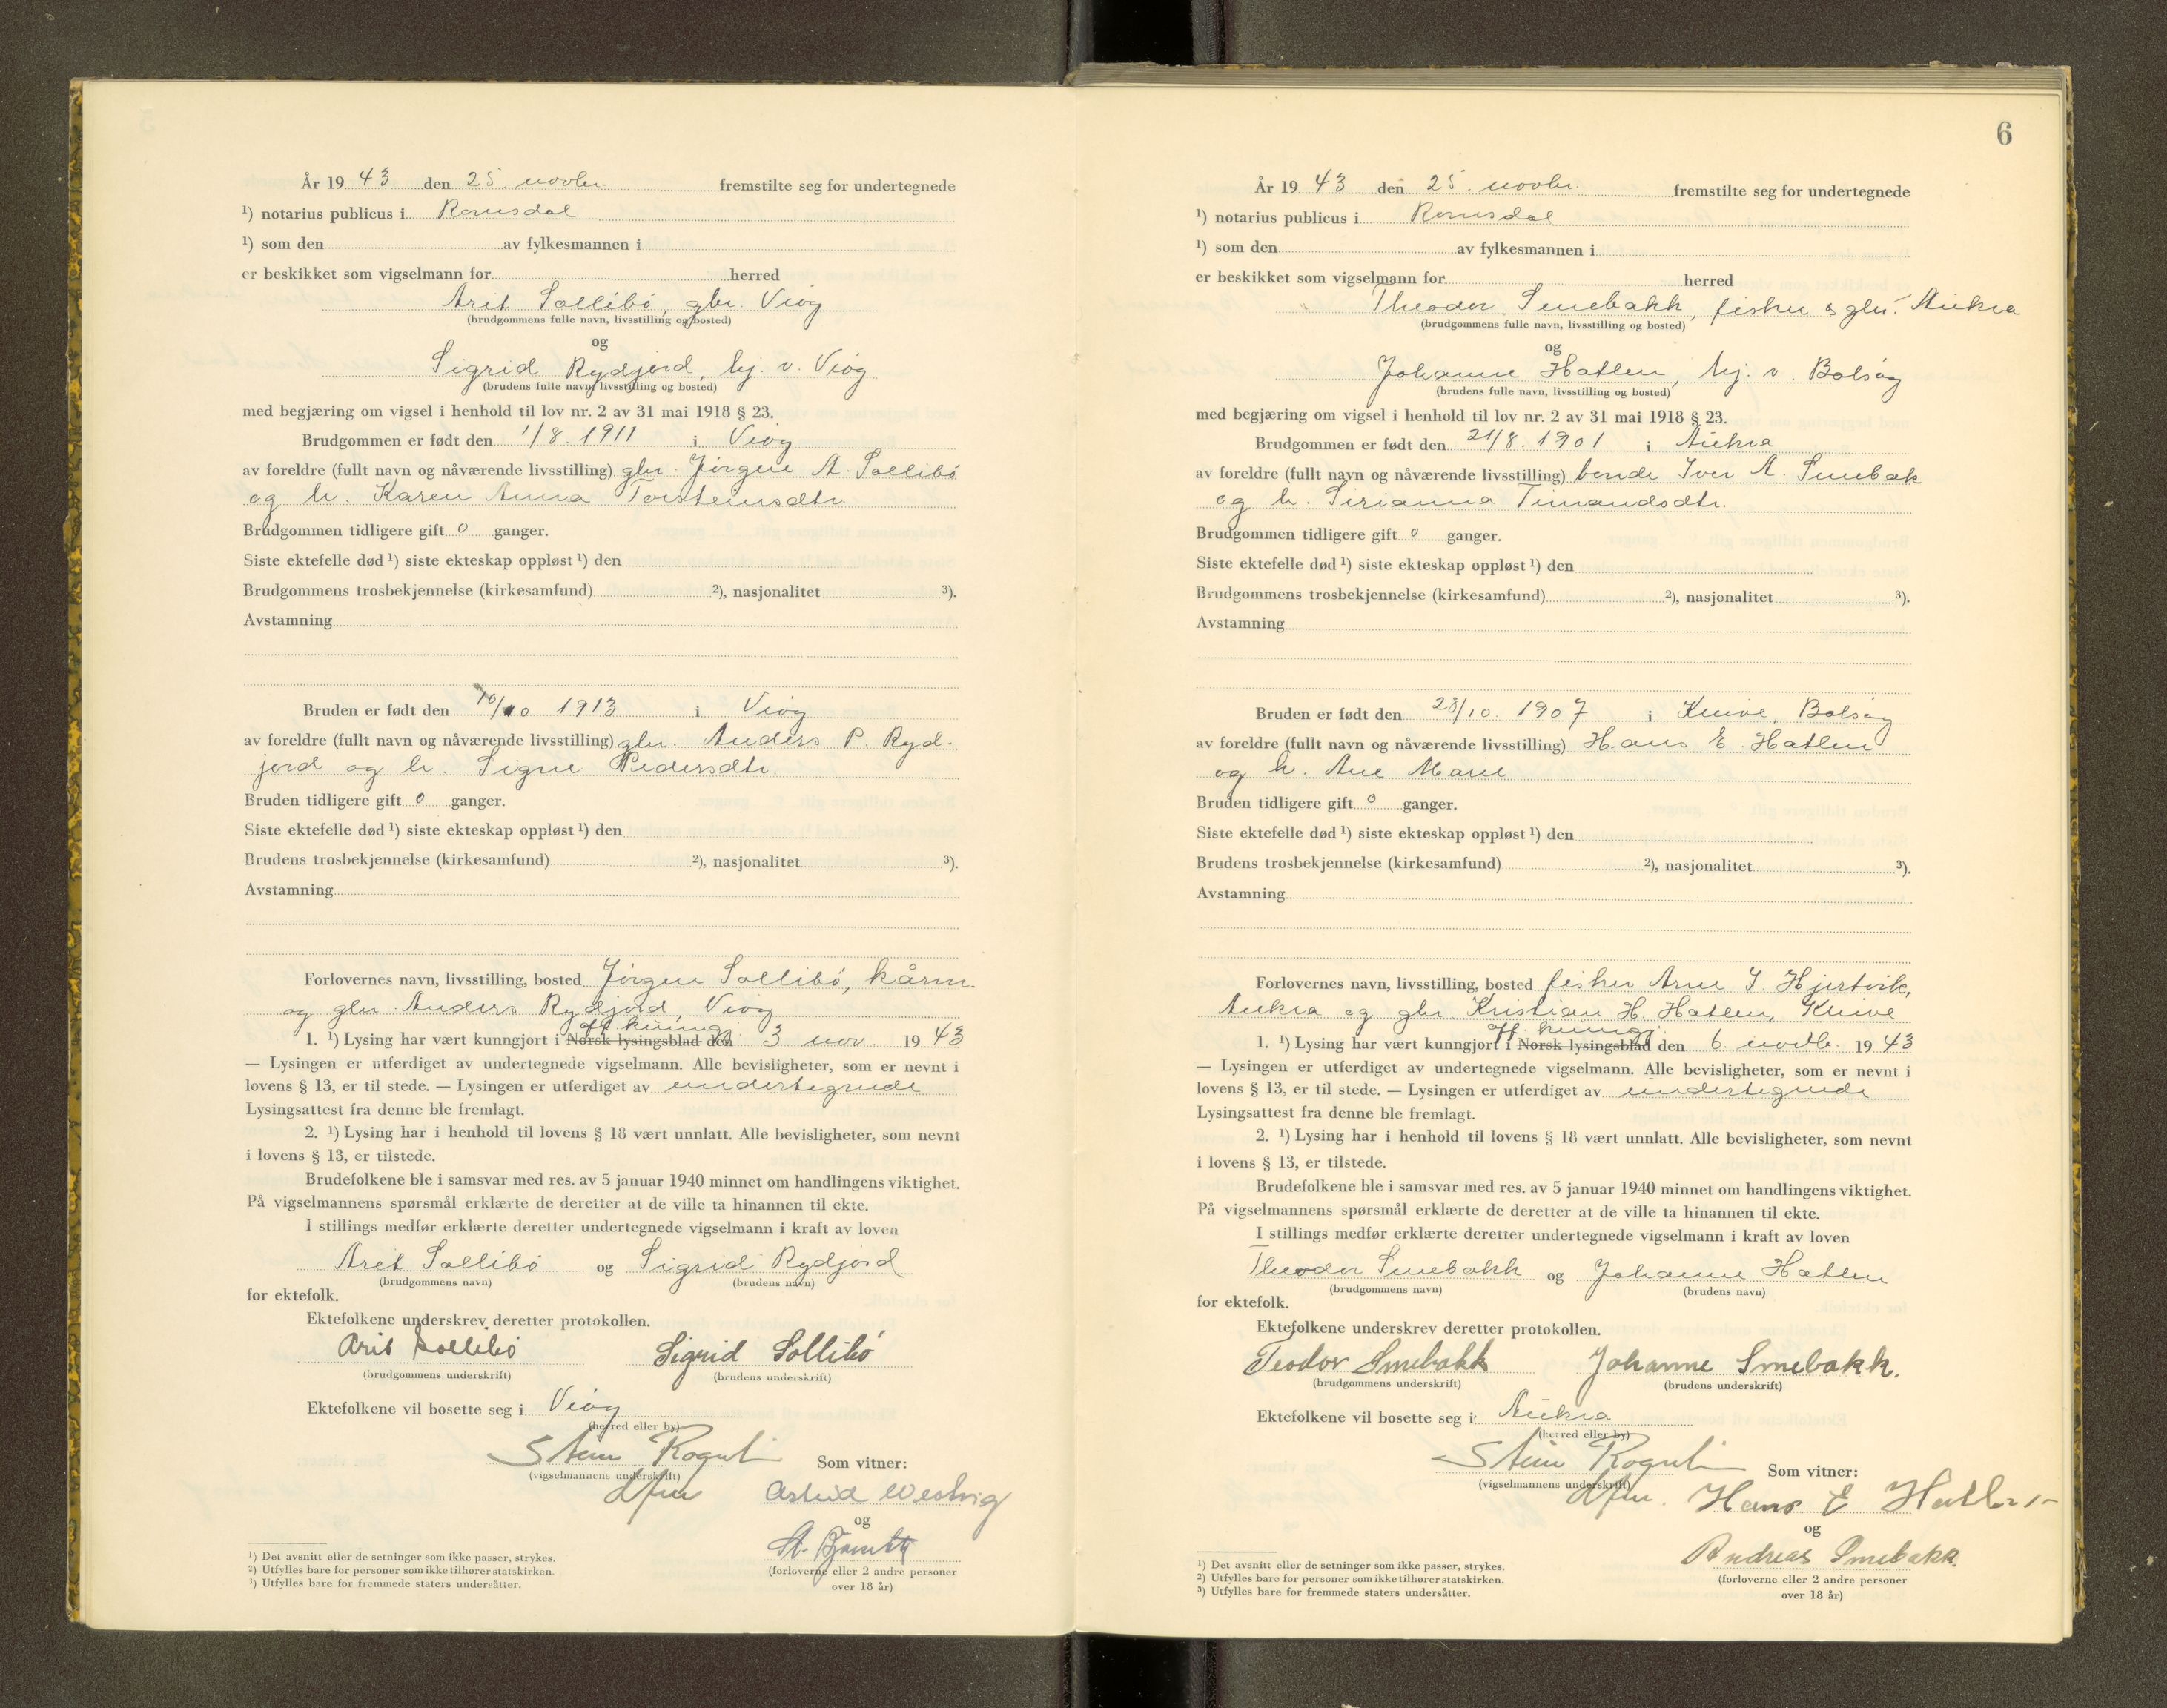 År 19 43 den 25. novbr. fremstilte seg for undertegnede
¹) notarius publicus i Romsdal
¹) som den av fylkesmannen i
er beskikket som vigselmann for herred
Arit Sollibø, gbr. Veøy
(brudgommens fulle navn, livsstilling og bosted)
og
Sigrid Rydjord, hj. v. Veøy
(brudens fulle navn, livsstilling og bosted)
med begjæring om vigsel i henhold til lov nr. 2 av 31 mai 1918 § 23.
Brudgommen er født den 1/8. 1911 i Veøy
av foreldre (fullt navn og nåværende livsstilling) gbr. Jørgen A. Sollibø
og h. Karen Anna Torsteinsdtr.
Brudgommen tidligere gift 0 ganger.
Siste ektefelle død ¹) siste ekteskap oppløst ¹) den
Brudgommens trosbekjennelse (kirkesamfund) ²), nasjonalitet ³).
Avstamning
Bruden er født den 10/10 1913 i Veøy
av foreldre (fullt navn og nåværende livsstilling) gbr. Anders P. Ryd-
jord og h. Signe Pedersdtr.
Bruden tidligere gift 0 ganger.
Siste ektefelle død ¹) siste ekteskap oppløst ¹) den
Brudens trosbekjennelse (kirkesamfund) ²), nasjonalitet ³).
Avstamning
Forlovernes navn, livsstilling, bosted Jørgen Sollibø, kårm.
og gbr. Anders Rydjord, Veøy
off. kunngj.
1. ¹) Lysing har vært kunngjort i Norsk lysingsblad den 3 nov. 19 43
— Lysingen er utferdiget av undertegnede vigselmann. Alle bevisligheter, som er nevnt i
lovens § 13, er til stede. — Lysingen er utferdiget av undertegnede
Lysingsattest fra denne ble fremlagt.
2. ¹) Lysing har i henhold til lovens § 18 vært unnlatt. Alle bevisligheter, som nevnt
i lovens § 13, er tilstede.
Brudefolkene ble i samsvar med res. av 5 januar 1940 minnet om handlingens viktighet.
På vigselmannens spørsmål erklærte de deretter at de ville ta hinannen til ekte.
I stillings medfør erklærte deretter undertegnede vigselmann i kraft av loven
Arit Sollibø og Sigrid Rydjord
(brudgommens navn) (brudens navn)
for ektefolk.
Ektefolkene underskrev deretter protokollen.
Arit Sollibø Sigrid Sollibø
(brudgommens underskrift) (brudens underskrift)
Ektefolkene vil bosette seg i Veøy
(herred eller by)
Stein Rognli
(vigselmannens underskrift)
dfm
Som vitner:
Astrid Westvig
og
(forloverne eller 2 andre personer
over 18 år)
¹) Det avsnitt eller de setninger som ikke passer, strykes.
²) Utfylles bare for personer som ikke tilhører statskirken.
³) Utfylles bare for fremmede staters undersåtter.
6
År 19 43 den 25. novbr. fremstilte seg for undertegnede
¹) notarius publicus i Romsdal
¹) som den av fylkesmannen i
er beskikket som vigselmann for herred
Theodor Smebakk, fisker & gbr. Aukra
(brudgommens fulle navn, livsstilling og bosted)
og
Johanne Hatlen, hj. v. Bolsøy
(brudens fulle navn, livsstilling og bosted)
med begjæring om vigsel i henhold til lov nr. 2 av 31 mai 1918 § 23.
Brudgommen er født den 21/8. 1901 i Aukra
av foreldre (fullt navn og nåværende livsstilling) bonde Iver A. Smebak
og h. Sirianna Timandsdtr.
Brudgommen tidligere gift 0 ganger.
Siste ektefelle død ¹) siste ekteskap oppløst ¹) den
Brudgommens trosbekjennelse (kirkesamfund) ²), nasjonalitet ³).
Avstamning
Bruden er født den 28/10. 1907 i Kleive, Bolsøy
av foreldre (fullt navn og nåværende livsstilling) Hans E. Hatlen
og h. Ane Marie
Bruden tidligere gift 0 ganger.
Siste ektefelle død ¹) siste ekteskap oppløst ¹) den
Brudens trosbekjennelse (kirkesamfund) ²), nasjonalitet ³).
Avstamning
Forlovernes navn, livsstilling, bosted fisker Arne I. Hjertvik,
Aukra og gbr. Kristian H. Hatlen, Kleive
off. kunngj.
1. ¹) Lysing har vært kunngjort i Norsk lysingsblad den 6. novbr. 19 43
— Lysingen er utferdiget av undertegnede vigselmann. Alle bevisligheter, som er nevnt i
lovens § 13, er til stede. — Lysingen er utferdiget av undertegnede
Lysingsattest fra denne ble fremlagt.
2. ¹) Lysing har i henhold til lovens § 18 vært unnlatt. Alle bevisligheter, som nevnt
i lovens § 13, er tilstede.
Brudefolkene ble i samsvar med res. av 5 januar 1940 minnet om handlingens viktighet.
På vigselmannens spørsmål erklærte de deretter at de ville ta hinannen til ekte.
I stillings medfør erklærte deretter undertegnede vigselmann i kraft av loven
Theodor Smebakk og Johanne Hatlen
(brudgommens navn) (brudens navn)
for ektefolk.
Ektefolkene underskrev deretter protokollen.
Teodor Smebakk Johanne Smebakk.
(brudgommens underskrift) (brudens underskrift)
Ektefolkene vil bosette seg i Aukra
(herred eller by)
Stein Rognli
(vigselmannens underskrift)
dfm.
Som vitner:
Hans E Hatlen
og
Andreas Smebakk.
(forloverne eller 2 andre personer
over 18 år)
¹) Det avsnitt eller de setninger som ikke passer, strykes.
²) Utfylles bare for personer som ikke tilhører statskirken.
³) Utfylles bare for fremmede staters undersåtter.